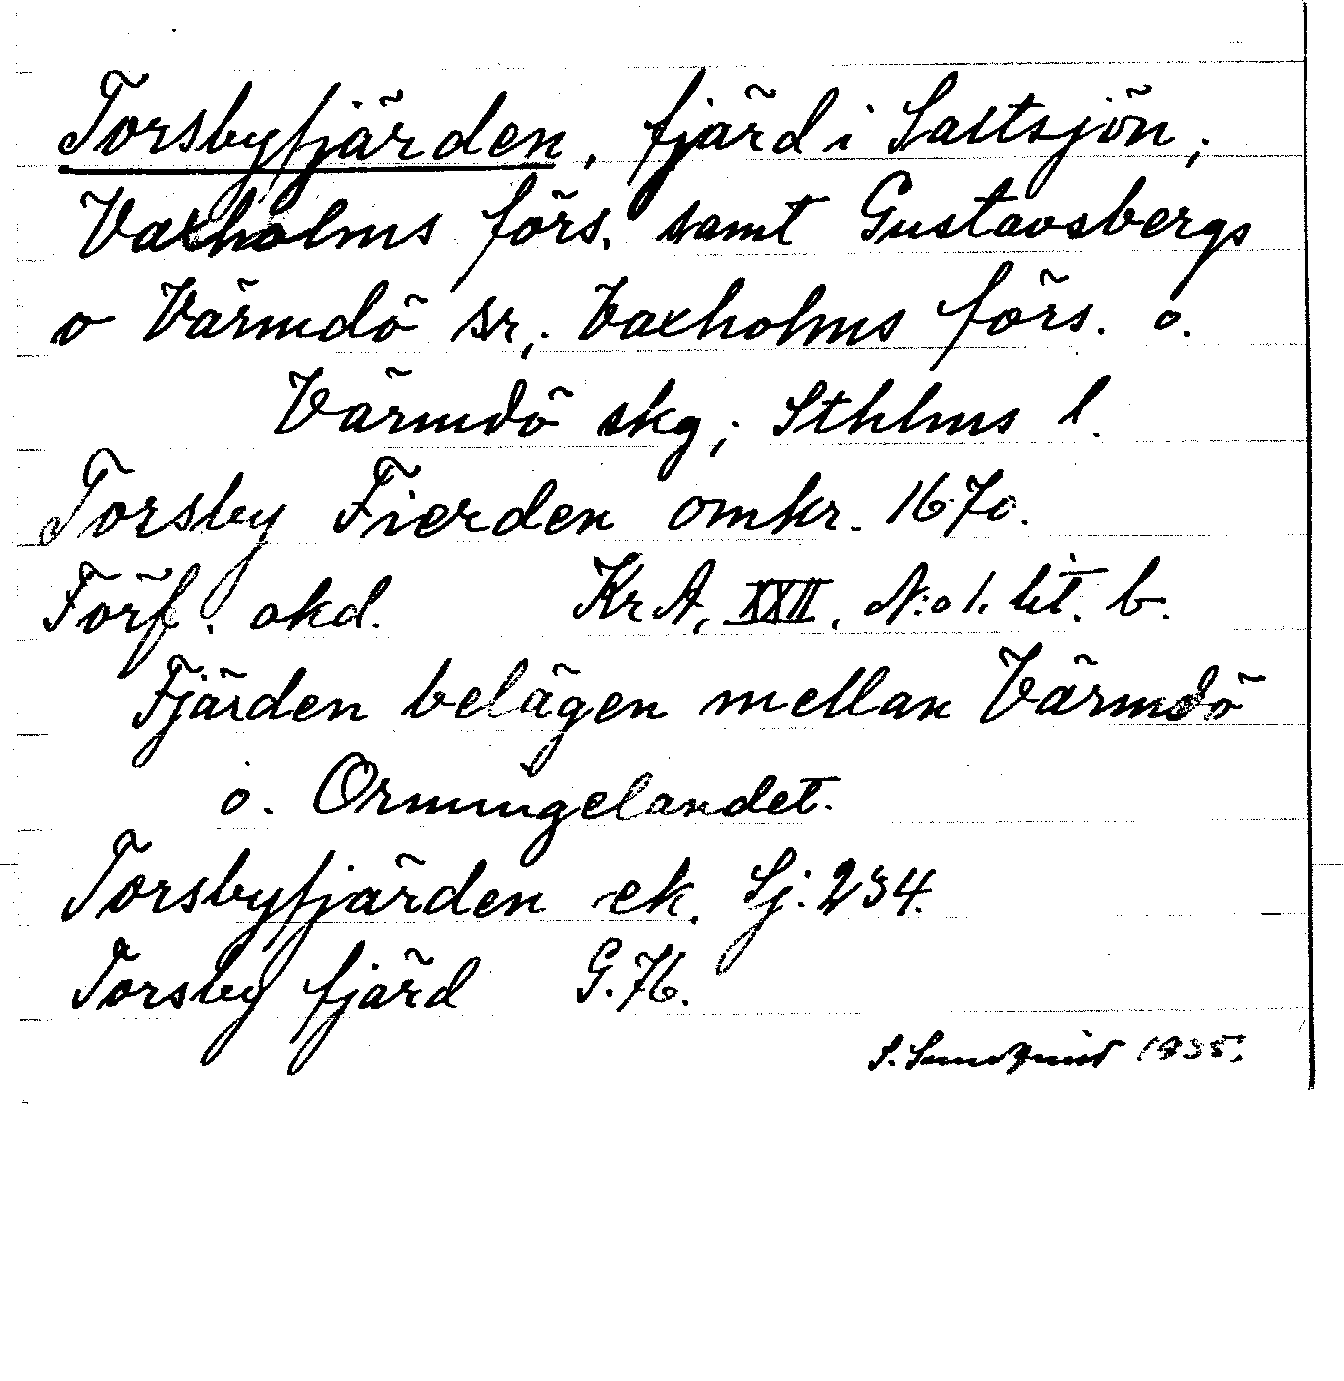 Torsbyfjärden, fjärd i Saltsjön;
Vaxholms förs. samt Gustavsbergs
o Värmdö sr; Vaxholms förs. o.
Värmdö skg; Sthlms l.
Torsby Fierden omkr. 1670.
Förf. okd. KrA, XXII, N:o 1. lit. b.
Fjärden belägen mellan Värmdö
o. Ormingelandet.
Torsbyfjärden ek. Sj. 234.
Torsby fjärd G. 76.
S. Sundquist 1935.